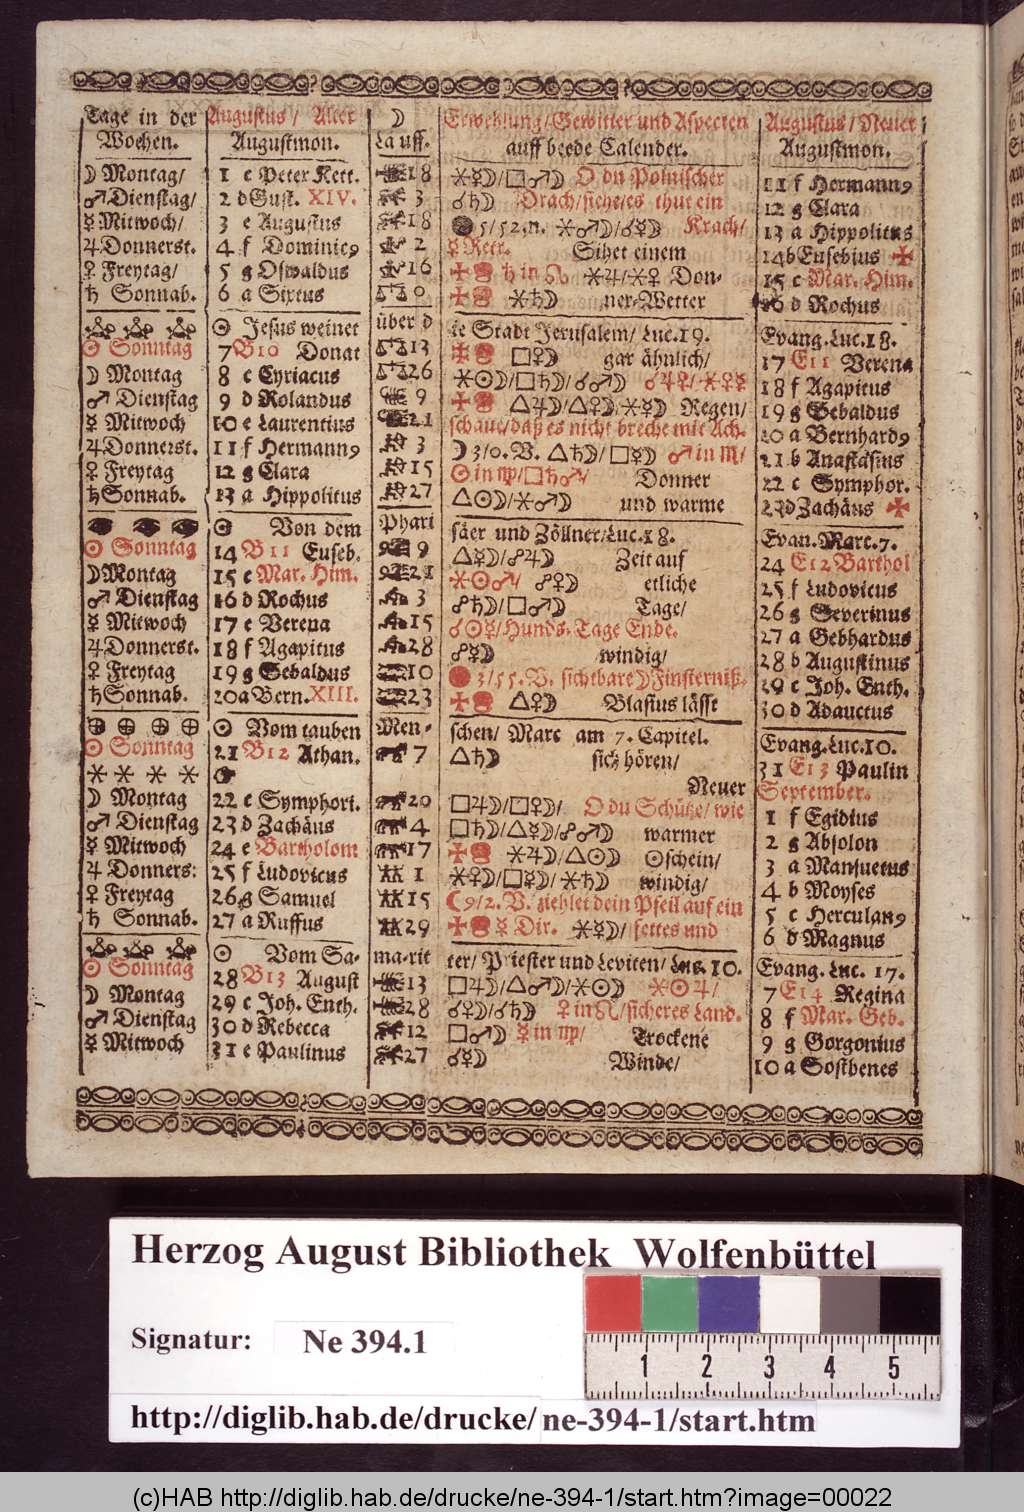 Tage in der Augustus / Alter ☽ Erwehlung / Gewitter und Aspecten Augustus / Neuer
Wochen. Augustmon. Lauff. auff beede Calender. Augustmon.
☽ Montag/ 1 c Peter Kett. 18 ⚹☿☽/□♂☽ O du Polnischer 11 f Hermann9
♂Dienstag/ 2 d Gust. XIV. 3 ☌♄☽ Drach/siehe/es thut ein 12 g Clara
☿Mitwoch/ 3 e Augustus 18 5/52,n. ⚹♂☽/☌☿☽ Krach/ 13 a Hippolitus
♃Donnerst. 4 f Dominic9 2 ☿ Retr. Sihet einem 14 b Eusebius ✠
♀ Freytag/ 5 g Oswaldus 16 ✠ ♄ in ♌ ⚹♃/⚹♀ Don- 15 c Mar. Him.
♄ Sonnab. 6 a Sixtus 0 ✠ ⚹♄☽ ner-Wetter 16 d Rochus
☉ Jesus weinet über d ie Stadt Jerusalem/ Luc.19. Evang. Luc. 18.
☉ Sonntag 7 B10 Donat 13 ✠ □♀☽ gar ähnlich/ 17 E11 Verena
☽ Montag 8 c Cyriacus 26 ⚹☉☽/□♄☽/☌♂☽ ☌♃♀/⚹♀☿ 18 f Agapitus
♂ Dienstag 9 d Rolandus 9 ✠ △♃☽/△♀☽/⚹☿☽ Regen/ 19 g Sebaldus
☿ Mitwoch 10 e Laurentius 21 schaue/daß es nicht breche mit Ach. 20 a Bernhard9
♃Donnerst. 11 f Hermann9 3 ☽ 3/0. V. △♄☽/□☿☽ ♂ in ♏/ 21 b Anastasius
♀ Freytag 12 g Clara 15 ☉ in ♍/□♄♂/ Donner 22 c Symphor.
♄Sonnab. 13 a Hippolitus 27 △☉☽/⚹♂☽ und warme 23 d Zachäus ✠
☉ Von dem Phari säer und Zöllner/Luc.18. Evan. Marc. 7.
☉ Sonntag 14 B11 Euseb. 9 △☿☽/☍♃☽ Zeit auf 24 E12 Barthol
☽Montag 15 c Mar. Him. 21 ⚹☉♂/ ☍♀☽ etliche 25 f Ludovicus
♂ Dienstag 16 d Rochus 3 ☍♄☽/□♂☽ Tage/ 26 g Severinus
☿ Mitwoch 17 e Verena 15 ☌☉☿/Hunds-Tage Ende. 27 a Gebhardus
♃Donnerst. 18 f Agapitus 28 ☍☿☽ windig/ 28 b Augustinus
♀ Freytag 19 g Sebaldus 10 3/55. V. sichtbare ☽ Finsterniß. 29 c Joh. Enth.
♄Sonnab. 20 a Bern. XIII. 23 ✠ △♀☽ Blasius lässt 30 d Adauctus
☉ Vom tauben Men- schen/ Marc am 7. Capitel. Evang. Luc. 10.
☉ Sonntag 21 B12 Athan. 7 △♄☽ sich hören/ 31 E13 Paulin
⚹ ⚹ ⚹ ⚹ Neuer September.
☽ Montag 22 c Symphori. 20 □♃☽/□♀☽/ O du Schütze/ wie 1 f Egidius
♂ Dienstag 23 d Zachäus 4 □♄☽/△☿☽/☍♂☽ warmer 2 g Absolon
☿ Mitwoch 24 e Bartholom 17 ✠ ⚹♃☽/△☉☽ ☉schein/ 3 a Mansuetus
♃ Donners: 25 f Ludovicus 1 ⚹♀☽/□☿☽/⚹♄☽ windig/ 4 b Moyses
♀ Freytag 26 g Samuel 15 ☾9/2. V. ziehlet dein Pfeil auf ein 5 c Herculan9
♄ Sonnab. 27 a Ruffus 29 ✠ ☿ Dir. ⚹☿☽/ fettes und 6 d Magnus
☉ Vom Sa- ma-rit ter/ Priester und Leviten/ Luc. 10. Evang. Luc. 17.
☉ Sonntag 28 B13 August 13 □♃☽/△♂☽/⚹☉☽ ⚹☉♃/ 7 E14 Regina
☽ Montag 29 c Joh. Enth. 28 ☌♀☽/☌♄☽ ♀ in ♌/sicheres Land. 8 f Mar. Geb.
♂ Dienstag 30 d Rebecca 12 □♂☽ ☿ in ♍/ Trockene 9 g Gorgonius
☿ Mitwoch 31 e Paulinus 27 ☌☿☽ Winde/ 10 a Sosthenes
Herzog August Bibliothek Wolfenbüttel
Signatur: Ne 394.1
1 2 3 4 5
http://diglib.hab.de/drucke/ne-394-1/start.htm
(c)HAB http://diglib.hab.de/drucke/ne-394-1/start.htm?image=00022